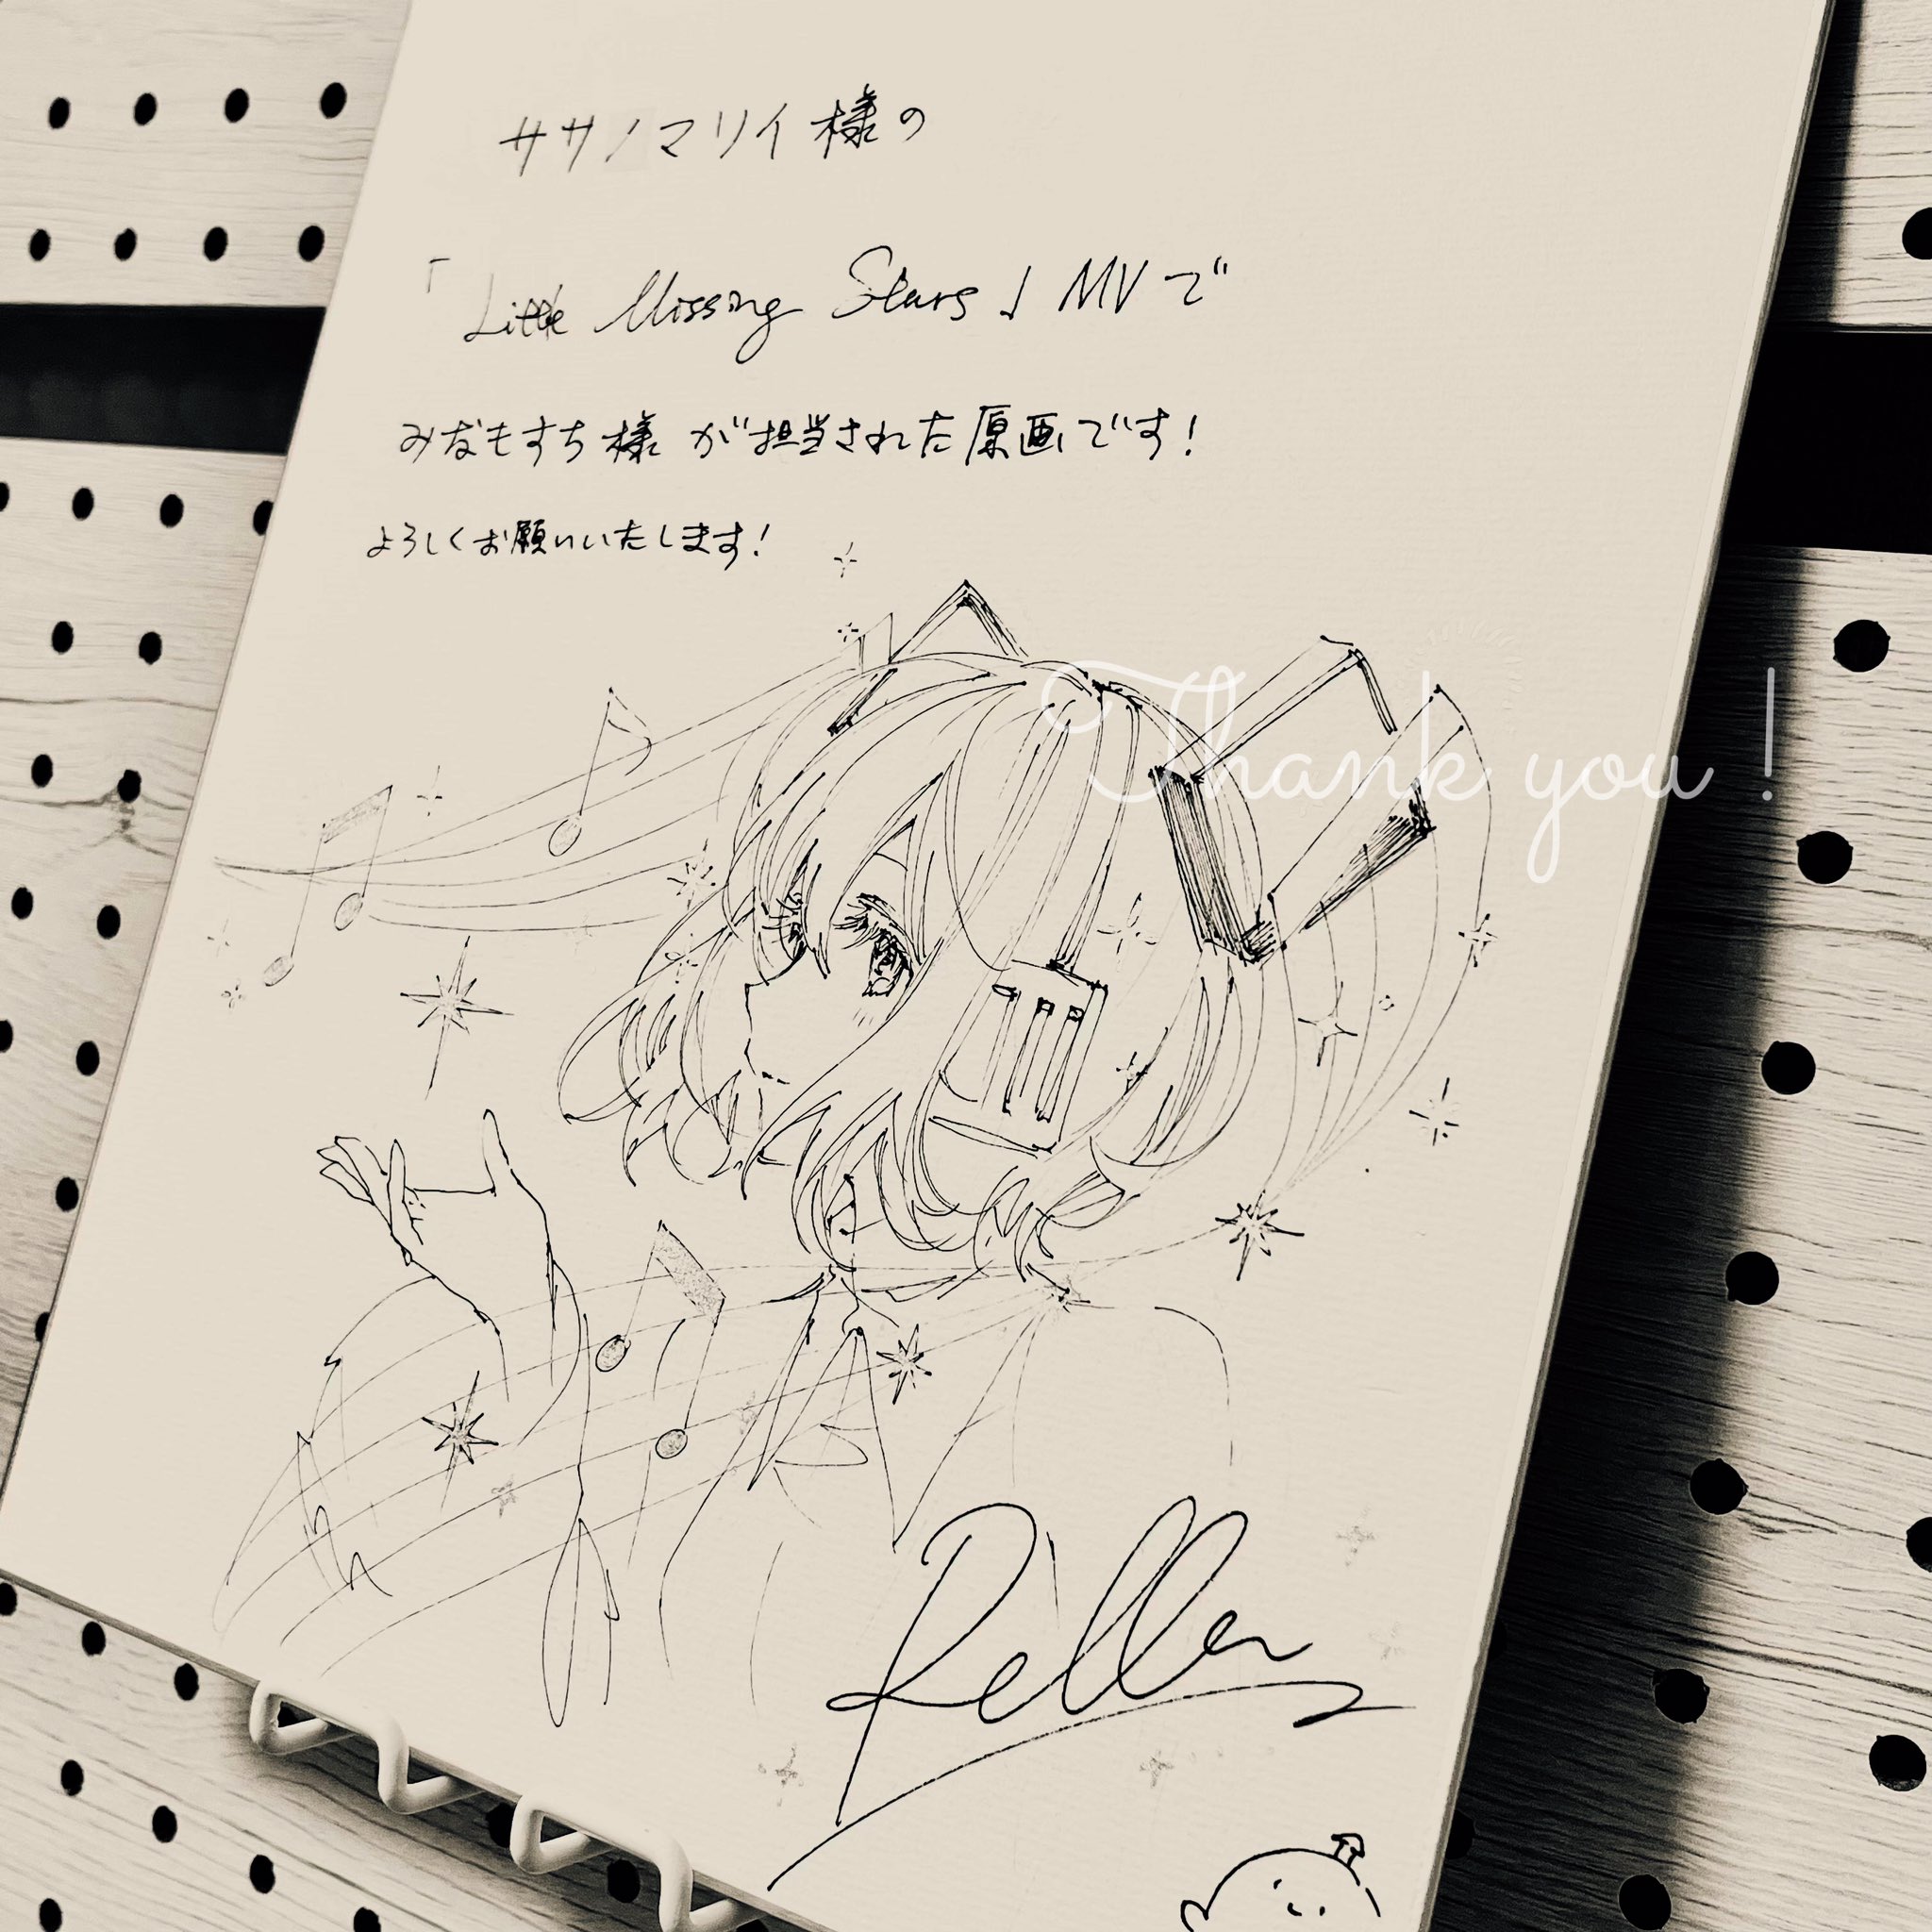 ササノマリイ様の
「Little Missing Stars」MVで
みなもすち様が担当された原画です!
よろしくお願いいたします!
Thank you !
Rella